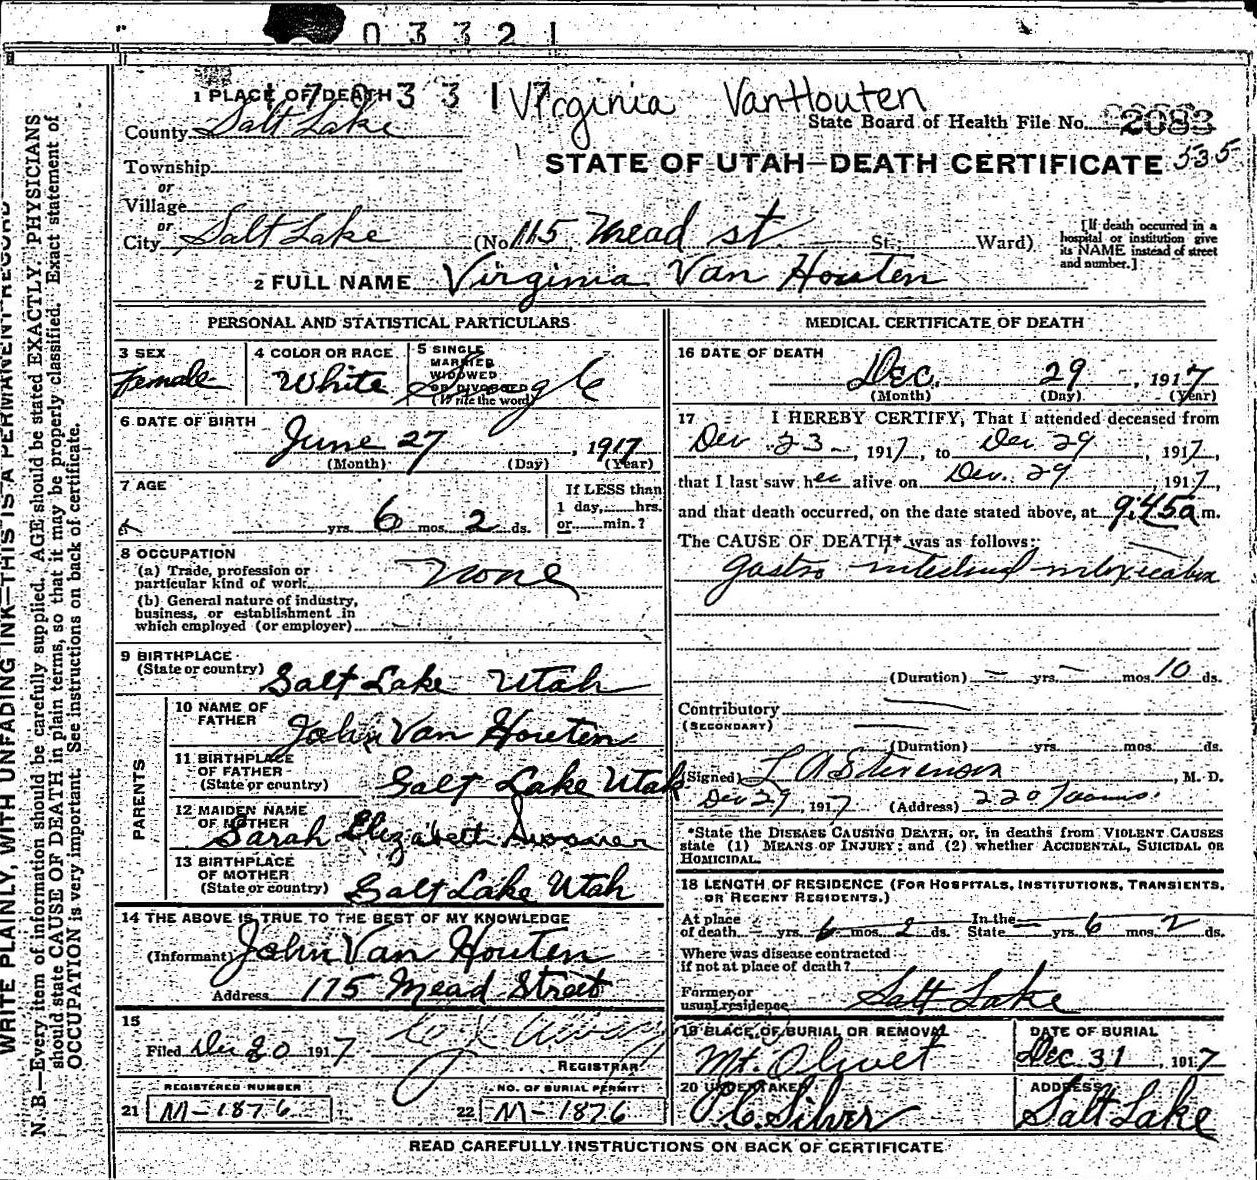 03321
1 PLACE OF DEATH
1703317
Virginia VanHouten
County Salt Lake
State Board of Health File No. 2083
Township
STATE OF UTAH—DEATH CERTIFICATE 535
or
Village
or
City Salt Lake (No. 115 Mead st. St.; Ward)
[If death occurred in a hospital or institution give its NAME instead of street and number.]
2 FULL NAME Virginia Van Houten
PERSONAL AND STATISTICAL PARTICULARS
3 SEX Female
4 COLOR OR RACE White
5 SINGLE MARRIED WIDOWED OR DIVORCED (Write the word) Single
6 DATE OF BIRTH
June 27, 1917
(Month) (Day) (Year)
7 AGE
yrs. 6 mos. 2 ds.
If LESS than 1 day, hrs. or min.?
8 OCCUPATION
(a) Trade, profession or particular kind of work None
(b) General nature of industry, business, or establishment in which employed (or employer)
9 BIRTHPLACE
(State or country) Salt Lake Utah
PARENTS
10 NAME OF FATHER John Van Houten
11 BIRTHPLACE OF FATHER (State or country) Salt Lake Utah
12 MAIDEN NAME OF MOTHER Sarah Elizabeth
13 BIRTHPLACE OF MOTHER (State or country) Salt Lake Utah
14 THE ABOVE IS TRUE TO THE BEST OF MY KNOWLEDGE
(Informant) John Van Houten
Address 115 Mead Street
15
Filed Dec 30 1917
REGISTRAR
REGISTERED NUMBER
21 M-1876
NO. OF BURIAL PERMIT
22 M-1876
MEDICAL CERTIFICATE OF DEATH
16 DATE OF DEATH
Dec. 29, 1917
(Month) (Day) (Year)
17 I HEREBY CERTIFY, That I attended deceased from
Dec 23, 1917, to Dec 29, 1917,
that I last saw her alive on Dec. 29, 1917,
and that death occurred, on the date stated above, at 9:45 a m.
The CAUSE OF DEATH* was as follows:
Gastro intestinal intoxication
(Duration) yrs. mos. 10 ds.
Contributory
(SECONDARY)
(Duration) yrs. mos. ds.
(Signed) L A Stevenson, M. D.
Dec 29, 1917 (Address) 220
*State the DISEASE CAUSING DEATH, or, in deaths from VIOLENT CAUSES
state (1) MEANS OF INJURY; and (2) whether ACCIDENTAL, SUICIDAL OR
HOMICIDAL.
18 LENGTH OF RESIDENCE (FOR HOSPITALS, INSTITUTIONS, TRANSIENTS,
OR RECENT RESIDENTS.)
At place of death yrs. 6 mos. 2 ds. In the State yrs. 6 mos. 2 ds.
Where was disease contracted
if not at place of death?
Former or
usual residence Salt Lake
19 PLACE OF BURIAL OR REMOVAL Mt. Olivet
DATE OF BURIAL Dec 31, 1917
20 UNDERTAKER P. C. Silver
ADDRESS Salt Lake
READ CAREFULLY INSTRUCTIONS ON BACK OF CERTIFICATE
WRITE PLAINLY, WITH UNFADING INK—THIS IS A PERMANENT RECORD
N. B.—Every item of information should be carefully supplied. AGE should be stated EXACTLY. PHYSICIANS
should state CAUSE OF DEATH in plain terms, so that it may be properly classified. Exact statement of
OCCUPATION is very important. See instructions on back of certificate.